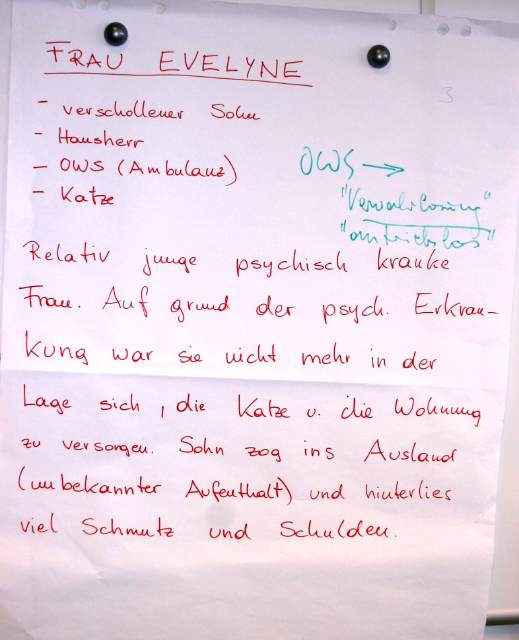 FRAU EVELYNE
3
- verschollener Sohn
- Hausherr
- OWS (Ambulanz)
- Katze
OWS →
"Verwahrlosung"
"antriebslos"
Relativ junge psychisch kranke
Frau. Auf grund der psych. Erkran-
kung war sie nicht mehr in der
Lage sich, die Katze u. die Wohnung
zu versorgen. Sohn zog ins Ausland
(unbekannter Aufenthalt) und hinterlies
viel Schmutz und Schulden.